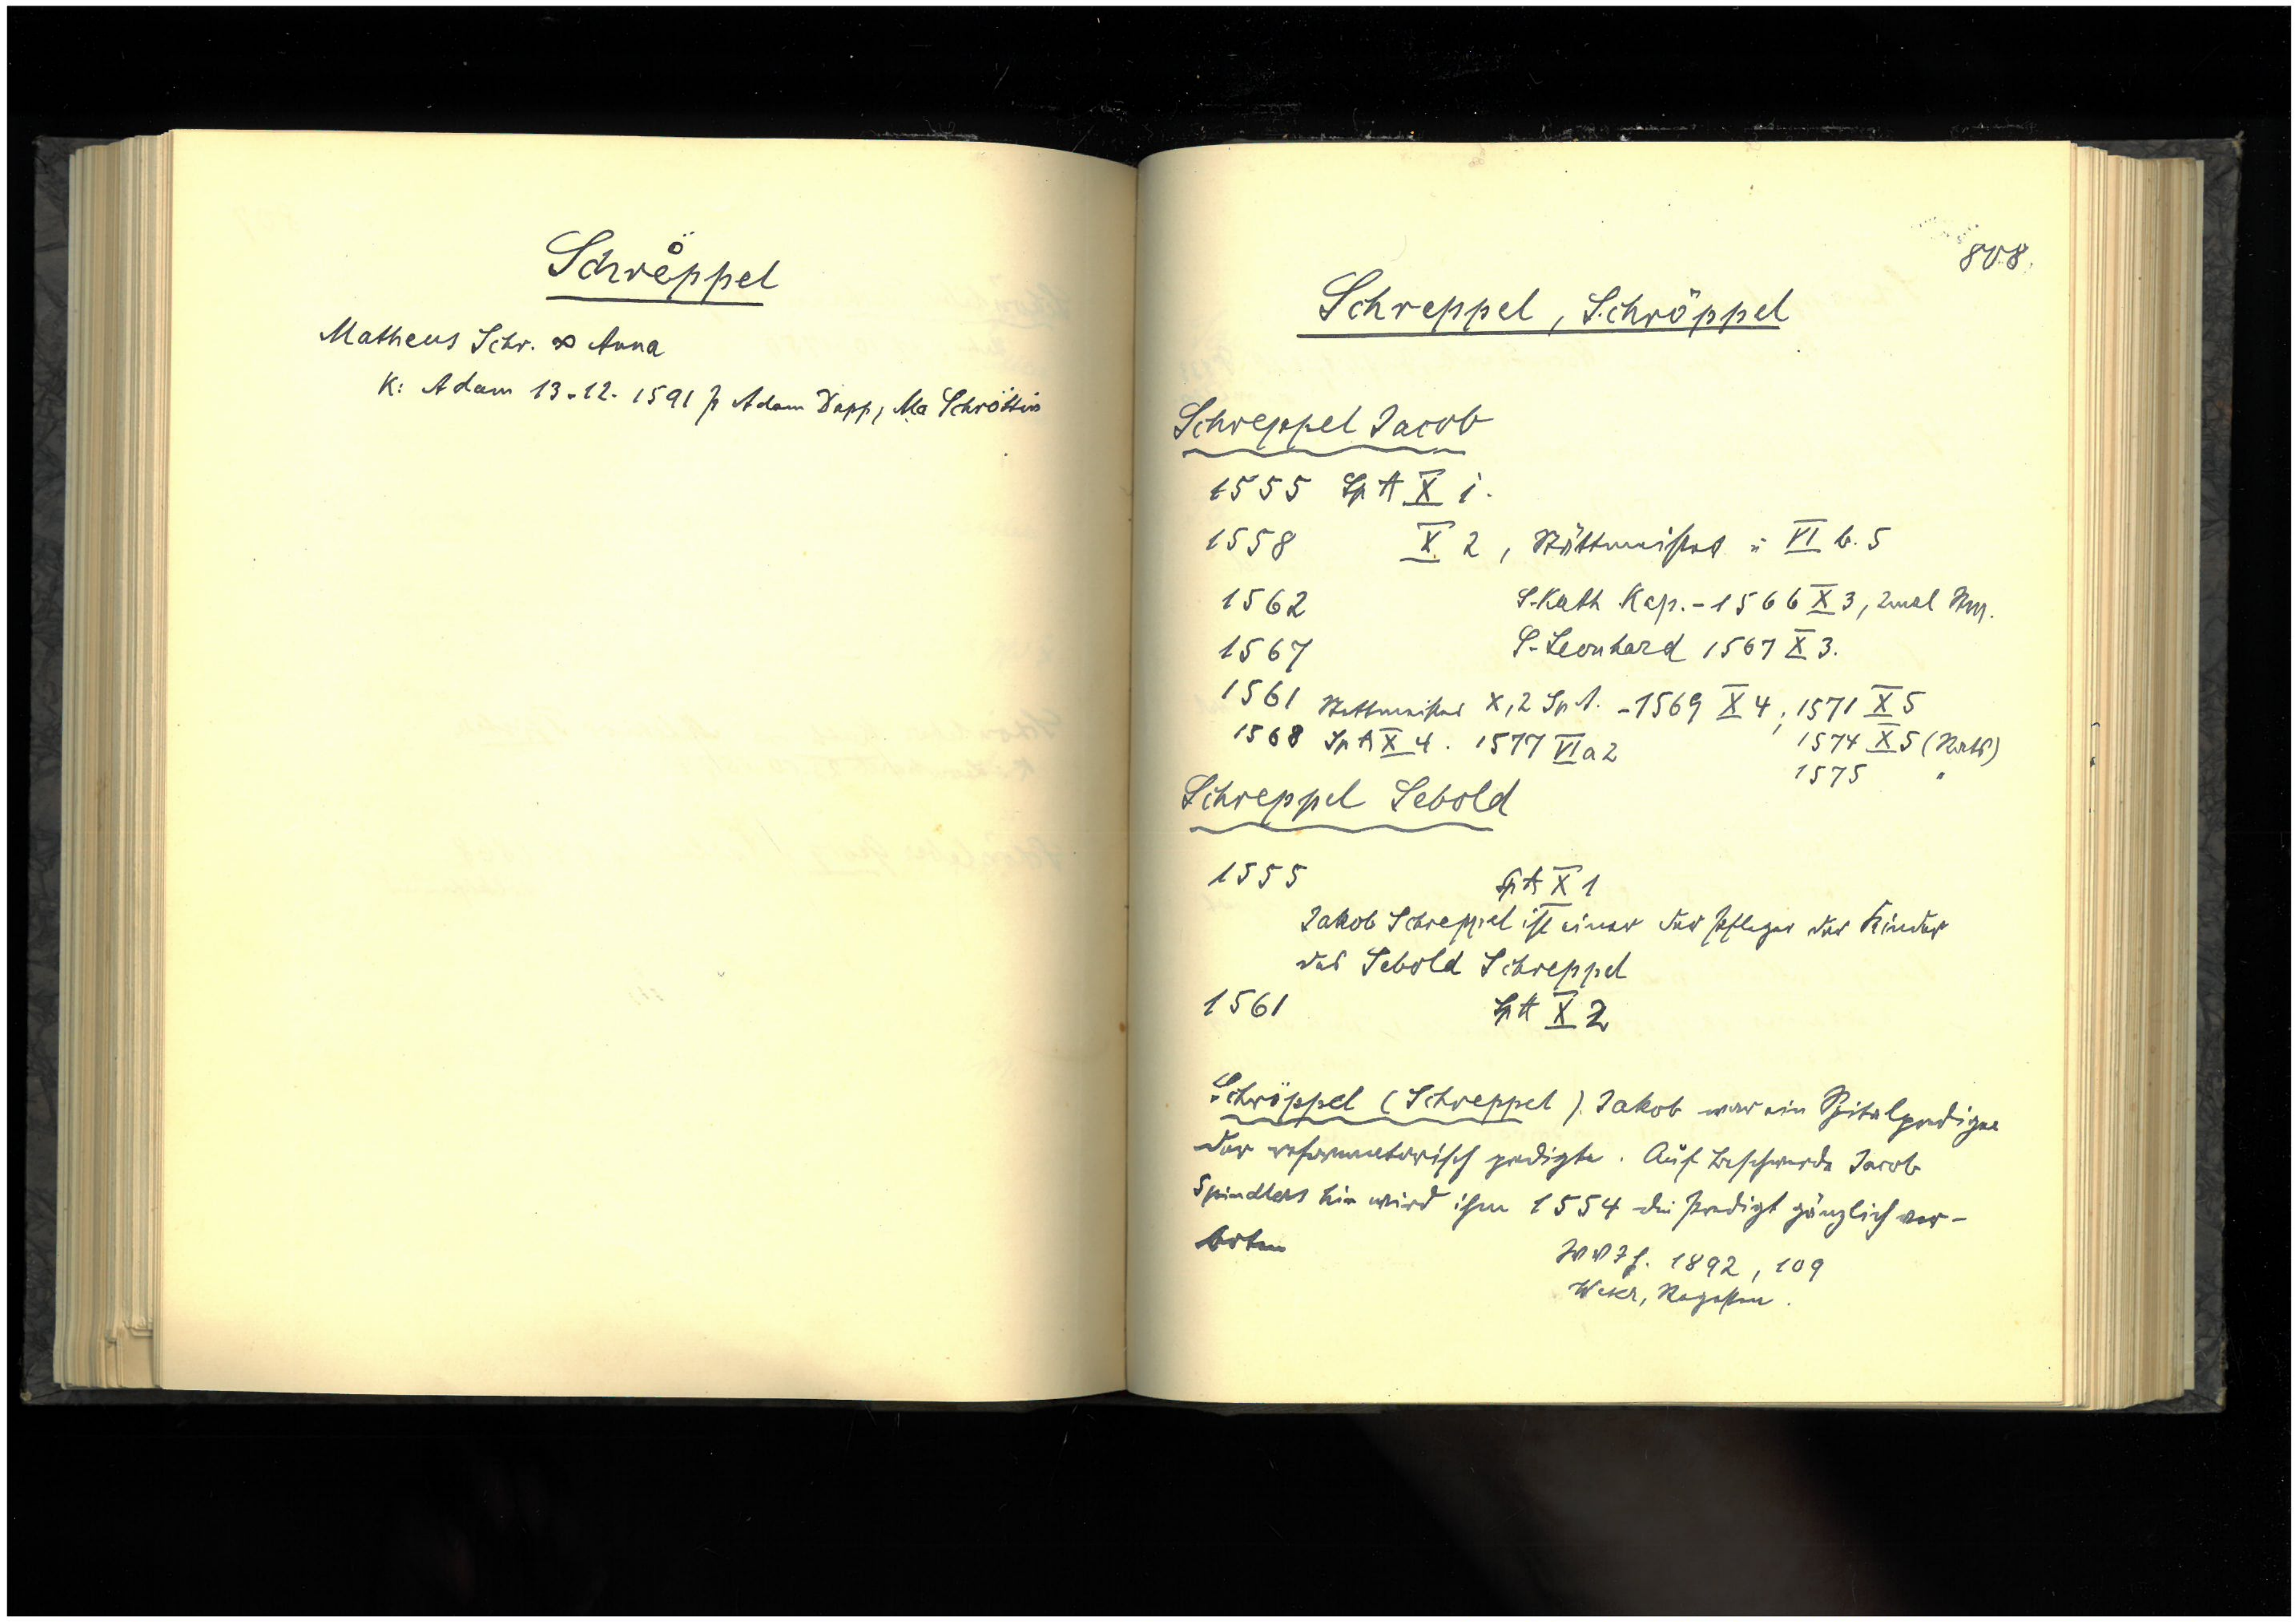 Schröppel
Matheus Schr. ∞ Anna
K: Adam 13.12. 1591 p Adam Dapp, Ma Schröttin
808.
Schreppel, Schröppel
Schreppel Jacob
1555 Sp A X 1.
1558 X 2, Stättmeister : VI b. 5
1562 S. Kath Kap. - 1566 X 3, 2mal
1567 S. Leonhard 1567 X 3.
1561 Stettmeister X, 2 Sp A. - 1569 X 4, 1571 X 5
1568 Sp A X 4. 1577 VI a 2 1574 X 5 (Rats)
1575 "
Schreppel Sebold
1555 Sp A X 1
Jakob Schreppel ist einer der Pfleger der Kinder
des Sebold Schreppel
1561 Sp A X 2
Schröppel (Schreppel) Jakob war ein Spitalprediger
der reformatorisch predigte. Auf Beschwerde Jacob
Spindlers hin wird ihm 1554 die Predigt gänzlich ver-
boten
1892, 109
Regesten.